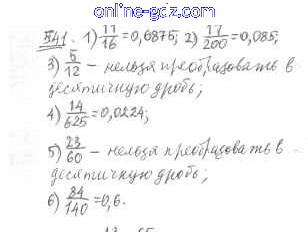 online-gdz.com
541. 1) 11/16 = 0,6875; 2) 17/200 = 0,085;
3) 5/12 – нельзя преобразовать в
десятичную дробь;
4) 14/625 = 0,0224;
5) 23/60 – нельзя преобразовать в
десятичную дробь;
6) 84/140 = 0,6.